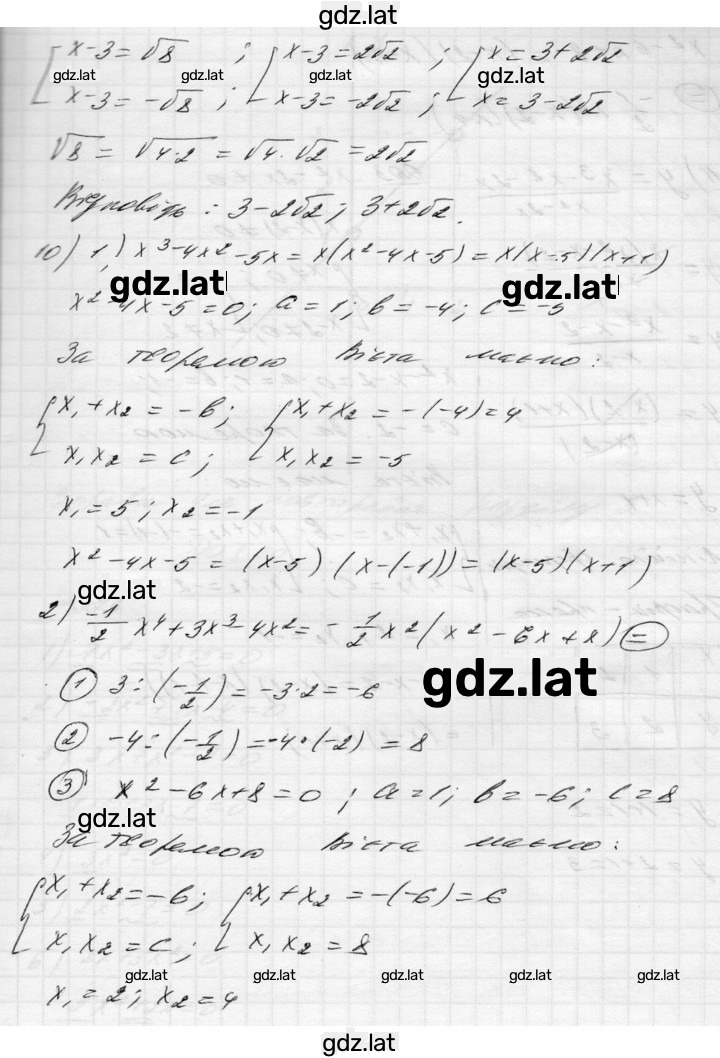 gdz.lat
[x-3=√8 ; [x-3=2√2 ; [x=3+2√2
gdz.lat gdz.lat gdz.lat
x-3=-√8 ; x-3=-2√2 ; x=3-2√2
√8 = √4·2 = √4·√2 = 2√2
Відповідь: 3-2√2; 3+2√2.
10) 1) x³-4x²-5x = x(x²-4x-5) = x(x-5)(x+1)
gdz.lat gdz.lat
x²-4x-5=0; a=1; b=-4; c=-5
За теоремою Вієта маємо:
{x₁+x₂=-b; {x₁+x₂=-(-4)=4
x₁x₂=c; x₁x₂=-5
x₁=5; x₂=-1
x²-4x-5 = (x-5)(x-(-1)) = (x-5)(x+1)
gdz.lat
2) -1/2 x⁴+3x³-4x² = -1/2 x²(x²-6x+8) =
gdz.lat
① 3:(-1/2) = -3·2 = -6
② -4:(-1/2) = -4·(-2) = 8
③ x²-6x+8=0; a=1; b=-6; c=8
gdz.lat
За теоремою Вієта маємо:
{x₁+x₂=-b; {x₁+x₂=-(-6)=6
x₁x₂=c; x₁x₂=8
gdz.lat gdz.lat gdz.lat gdz.lat
x₁=2; x₂=4
gdz.lat